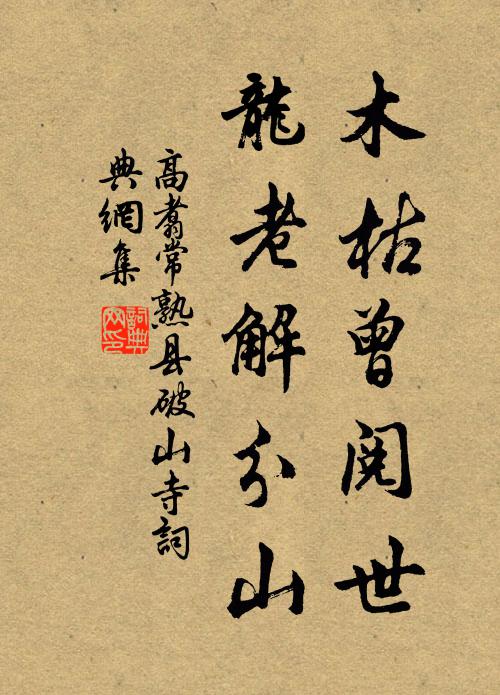 木枯曾閱世
龍老解分山
高翥常熟县破山寺詞
典網集
詞典
网印